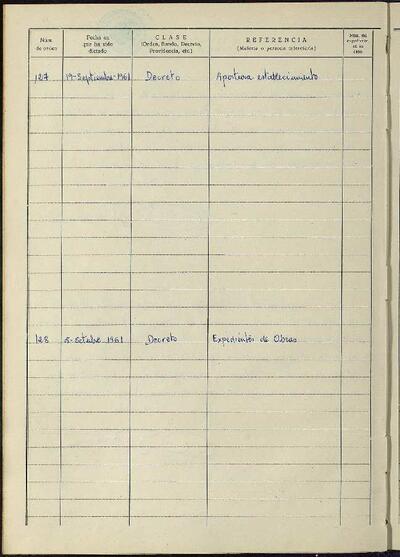 Núm. de orden
Fecha en que ha sido dictado
CLASE
(Orden, Bando, Decreto, Providencia, etc.)
REFERENCIA
(Materia o persona interesada)
Núm. del expediente
127 19-Septiembre-1961 Decreto Apertura establecimiento
128 5-octubre 1961 Decreto Expedientes de Obras